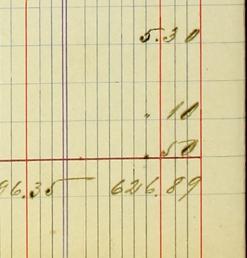 5.30
" 10
" 50
96.35 626.89